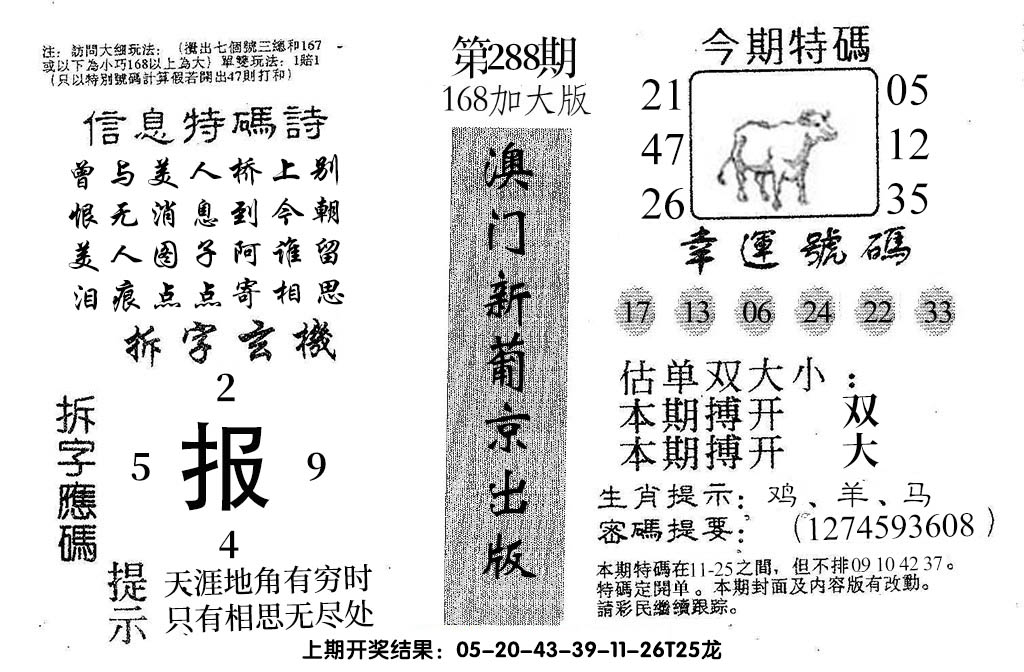 注：訪問大細玩法：（攪出七個號三總和167
或以下為小巧168以上為大）單雙玩法：1賠1
（只以特別號碼計算假若開出47則打和）
信息特碼詩
曾与美人桥上别
恨无消息到今朝
美人图子阿谁留
泪痕点点寄相思
拆字玄機
拆字應碼
2
5 报 9
4
提示
天涯地角有穷时
只有相思无尽处
第288期
168加大版
澳门新葡京出版
今期特碼
21 05
47 12
26 35
幸運號碼
17 13 06 24 22 33
估单双大小：
本期搏开 双
本期搏开 大
生肖提示：鸡、羊、马
密碼提要：（1274593608）
本期特碼在11-25之間，但不排09 10 42 37。
特碼定開单。本期封面及内容版有改動。
請彩民繼續跟踪。
上期开奖结果：05-20-43-39-11-26T25龙